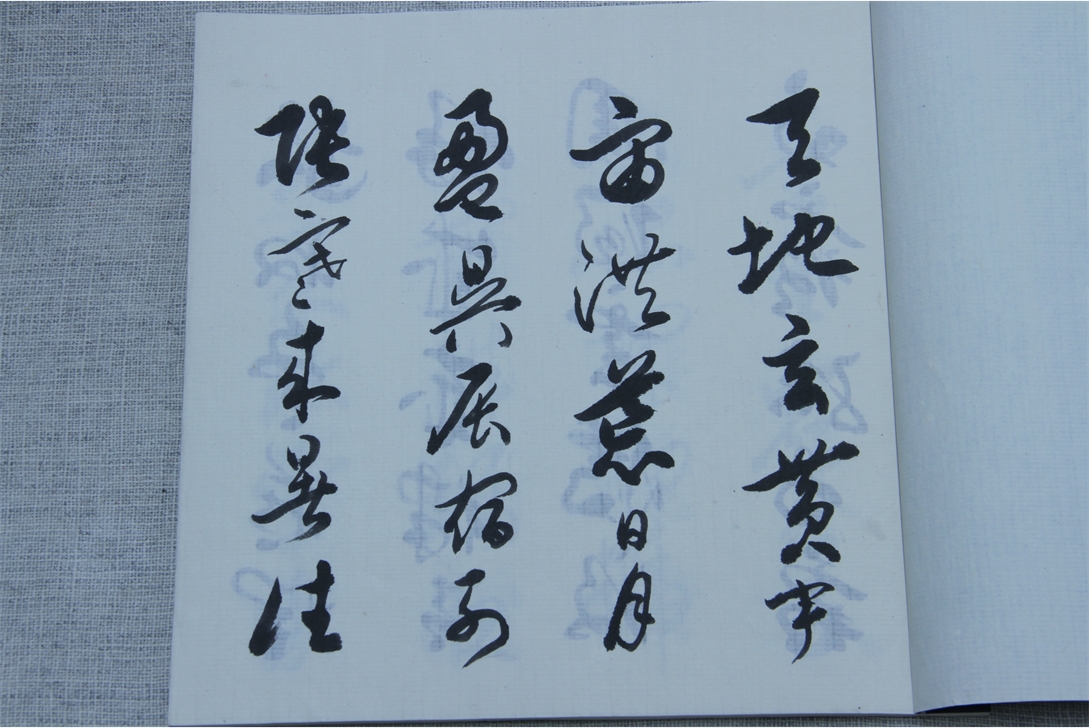 天地玄黄宇
宙洪荒日月
盈昃辰宿列
张寒来暑往